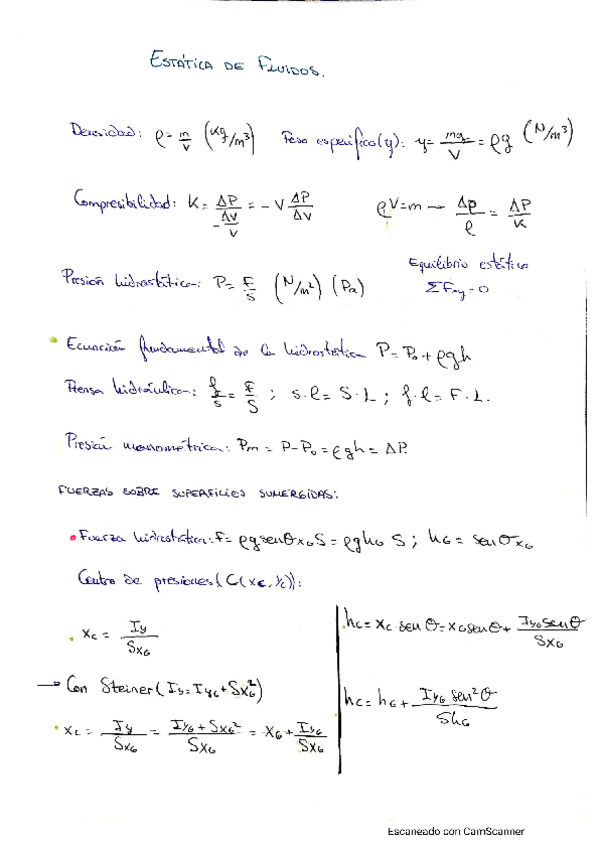 ESTÁTICA DE FLUIDOS.
Densidad: ρ = m/v (Kg/m³) Peso específico (γ): γ = mg/V = ρg (N/m³)
Compresibilidad: K = ΔP/(-ΔV/V) = -V ΔP/ΔV ρV=m — Δρ/ρ = ΔP/K
Presión hidrostática: P = F/S (N/m²) (Pa)
Equilibrio estático
ΣFxy = 0
Ecuación fundamental de la hidrostática P = P₀ + ρgh
Prensa hidráulica: f/s = F/S ; s·l = S·L ; f·l = F·L.
Presión manométrica: Pm = P-P₀ = ρgh = ΔP.
FUERZAS SOBRE SUPERFICIES SUMERGIDAS:
Fuerza hidrostática: F = ρg senθ xG S = ρghG S ; hG = senθ xG
Centro de presiones (C(xc, yc)):
xc = Iy/SxG
→ Con Steiner (Iy = IyG + SxG²)
xc = Iy/SxG = (IyG + SxG²)/SxG = xG + IyG/SxG
hc = xc senθ = xG senθ + IyG senθ/SxG
hc = hG + IyG sen²θ/ShG
Escaneado con CamScanner